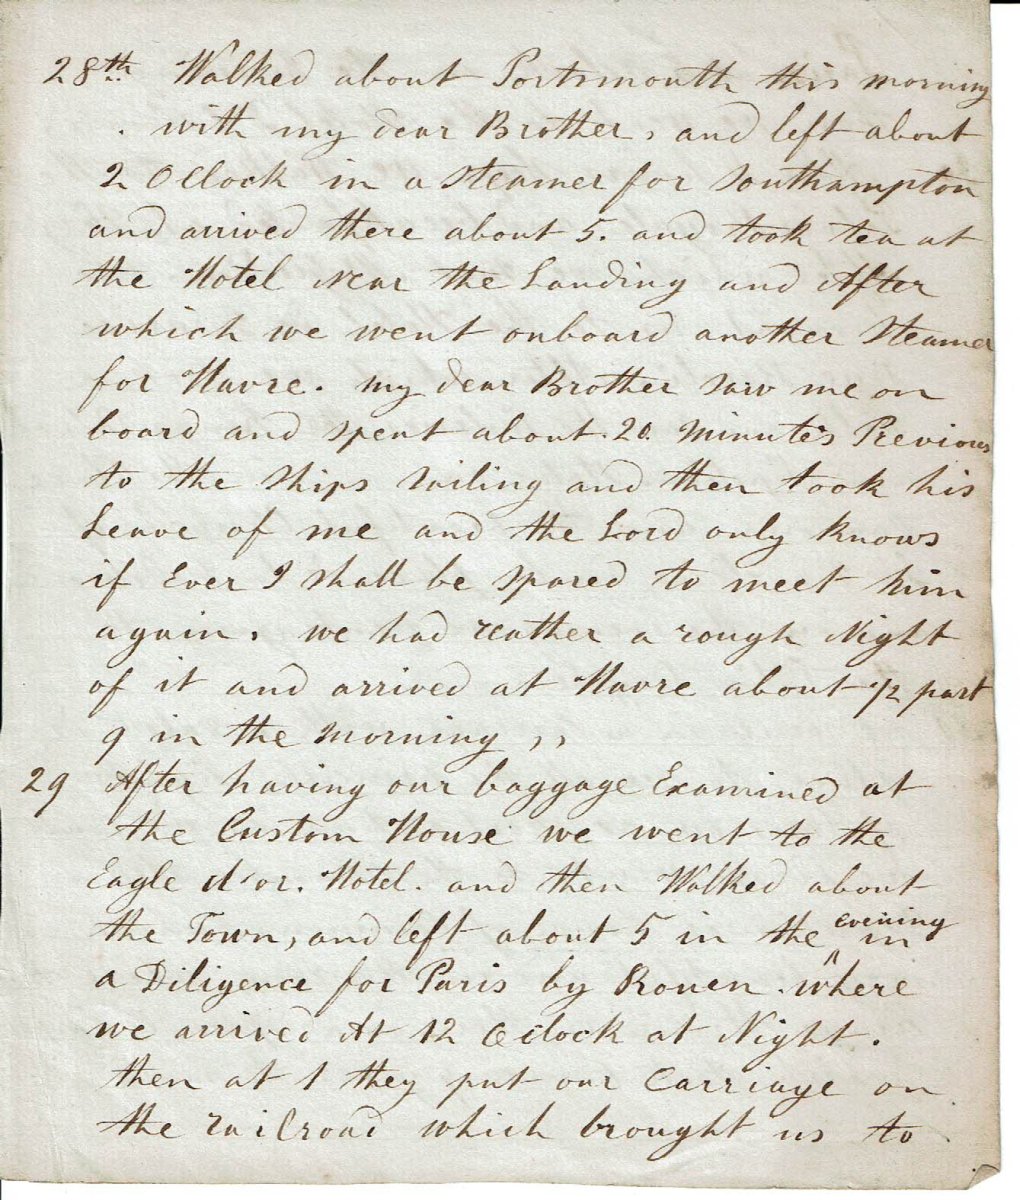 28th Walked about Portsmouth this morning
with my dear Brother, and left about
2 OClock in a steamer for Southampton
and arrived there about 5. and took tea at
the Hotel near the Landing and After
which we went onboard another Steamer
for Havre. my dear Brother saw me on
board and spent about 20 minutes Previous
to the Ships sailing and then took his
Leave of me and the Lord only knows
if Ever I shall be spared to meet him
again. we had reather a rough Night
of it and arrived at Havre about 1/2 past
9 in the morning ,,
29 After having our baggage Examined at
the Custom House we went to the
Eagle d'or. Hotel. and then Walked about
the Town, and left about 5 in the evening in
a Diligence for Paris by Rouen. where
we arrived At 12 Oclock at Night.
then at 1 they put our Carriage on
the railroad which brought us to